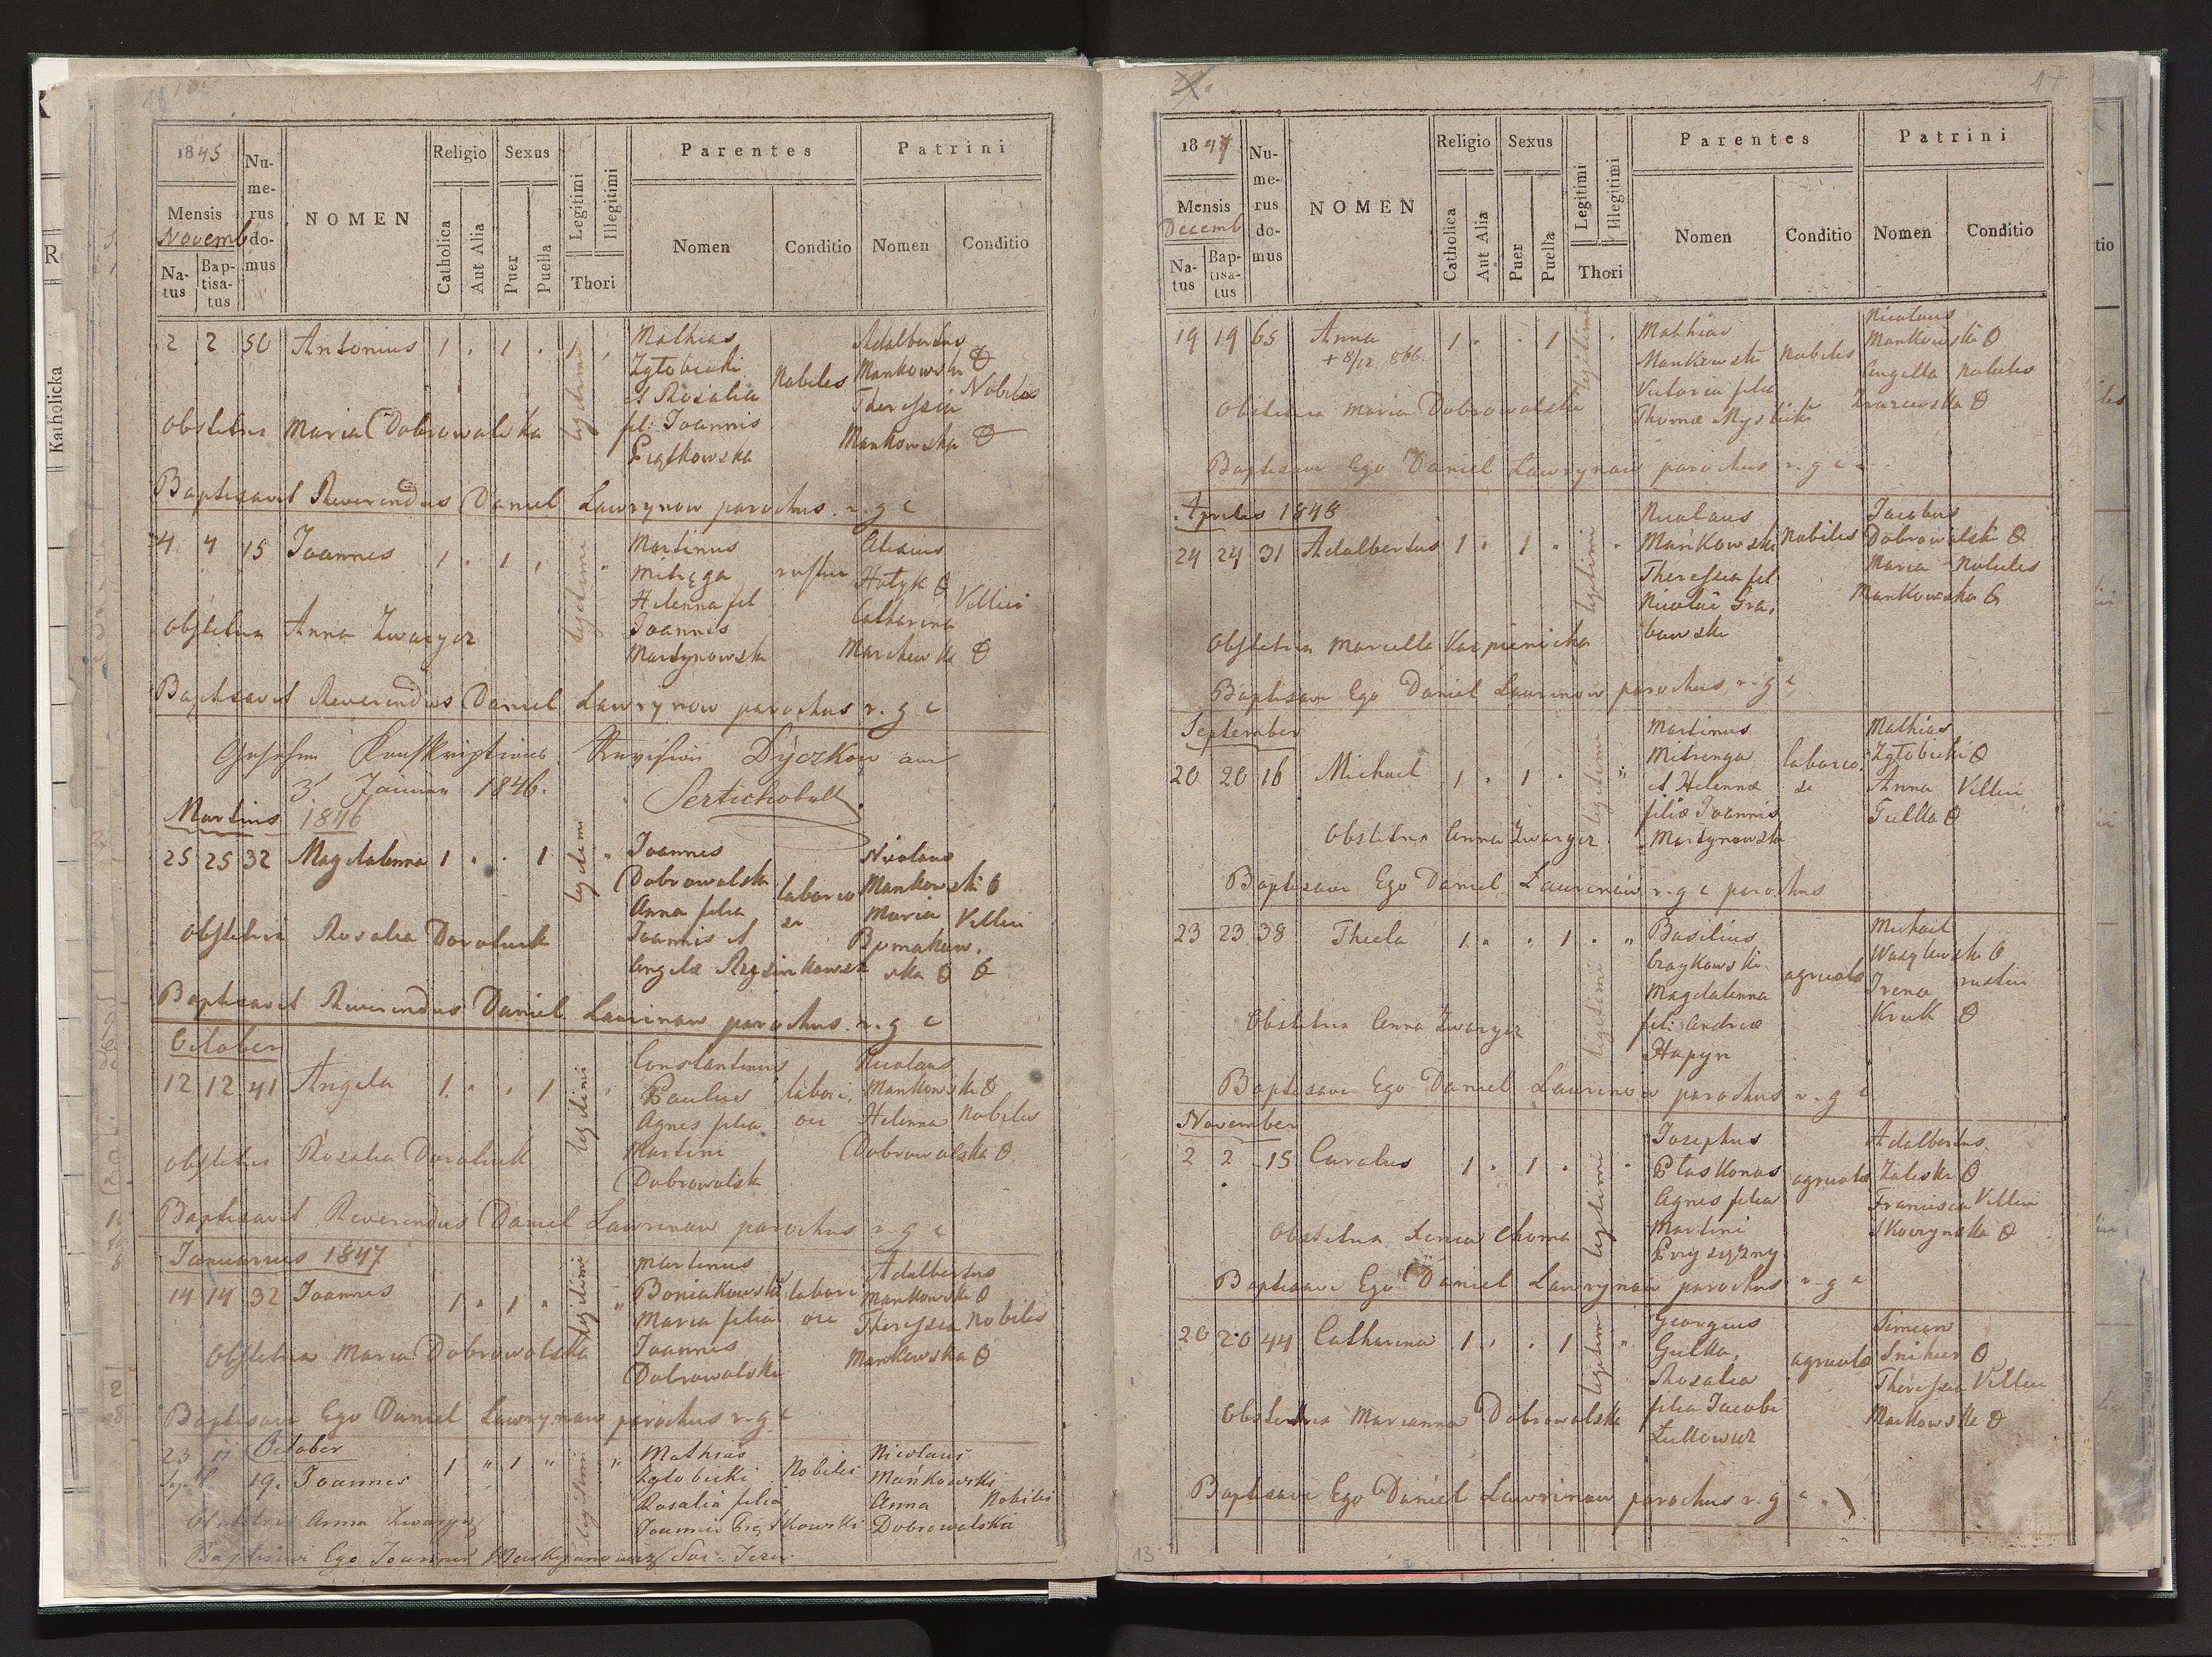 1845
Mensis
Novemb
Na-
tus
Bap-
tisa-
tus
Nu-
me-
rus
do-
mus
NOMEN
Religio
Catholica
Aut Alia
Sexus
Puer
Puella
Legitimi
Illegitimi
Thori
Parentes
Nomen
Conditio
Patrini
Nomen
Conditio
2 2 50 Antonius 1 . 1 . 1 ,
legitimi
Mathias
Zgłobicki
et Rosalia
fil: Joannis
Piątkowska
Nobiles
Adalbertus
Mankowski
Theressia
Mankowska
Nobiles
Obstetrix Maria Dobrowolska
Baptisavit Reverendus Daniel Lawrynow parochus r. g c
4 4 15 Joannes 1 . 1 ,
legitimi
Martinus
Mitręga
Helenna fil
Joannis
Martynowski
Alexius
Hotyk
Catharina
Marchewka
Villici
Obstetrix Anna Zwarycz
Baptisavit Reverendus Daniel Lawrynow parochus r. g c
Revision Dyczkow am
3 1846.
Martius 1846
25 25 32 Magdalenna 1 . . 1
legitimi
Joannes
Dobrowolski
Anna filia
Joannis et
Angelæ
laborio
sæ
Nicolaus
Mankowski
Maria
ska
Villici
Obstetrix Rosalia Doroliuk
Baptisavit Reverendus Daniel Laurinow parochus r. g c
October
12 12 41 Angela 1. . . 1
legitimi
Constantinus
Paulus
Agnes filia
Martini
Dobrowolski
Nicolaus
Mankowski
Helenna
Dobrowolska
Nobiles
Obstetrix Rosalia Doroliuk
Baptisavit Reverendus Daniel Lawrinow parochus r. g c
Januarius 1847
14 14 32 Joannes 1 . 1 .
legitimi
Martinus
Boniakowski
Maria filia
Joannis
Dobrowolski
Adalbertus
Mankowski
Theressia
Mankowska
Nobiles
Obstetrix Maria Dobrowolska
Baptisavi Ego Daniel Lawrynow parochus r. g c
October
23 11
19. Joannes 1 " 1 " "
legitimi
Mathias
Zgłobicki
Rosalia filia
Joannis Piątkowski
Nobiles
Nicolaus
Mańkowski
Anna
Dobrowolska
Nobiles
Obstetrix Anna Zwarycz
Baptisavi Ego Joannes
17
1847
Mensis
Decemb
Na-
tus
Bap-
tisa-
tus
Nu-
me-
rus
do-
mus
NOMEN
Religio
Catholica
Aut Alia
Sexus
Puer
Puella
Legitimi
Illegitimi
Thori
Parentes
Nomen
Conditio
Patrini
Nomen
Conditio
19 19 65 Anna 1 . . 1
+ 8/12 866.
legitimi
Mathias
Mankowski
Victoria filia
Thomæ
nobiles
Nicolaus
Mankowski
Angella
nobiles
Obstetrix Maria Dobrowolska
Baptisavi Ego Daniel Lawrynow parochus r. g c
Aprilis 1848
24 24 31 Adalbertus 1 . 1 .
legitimi
Nicolaus
Mańkowski
Theressia fil
Nicolai Gra,
bowski
nobiles
Jacobus
Dobrowolski
Maria
Mankowska
nobiles
Obstetrix Marcella Karpienicka
Baptisavi Ego Daniel Laurinow parochus r. g c
September
20 20 16 Michael 1 . 1 . "
legitimi
Martinus
Mitrenga
et Helennæ
filiæ Joannis
Martynowski
laborio.
sæ
Mathias
Zgłobicki
Anna
Gulka
Villici
Obstetrix Anna Zwarycz
Baptisavi Ego Daniel Laurinow r. g c parochus
23 23 38 Thecla 1 . . 1 . "
legitimi
Basilius
Czaykowski
Magdalenna
fil: Andreæ
Hapyn
agricolæ
Michael
Wasylewski
Irena
Kruk
rustici
Obstetrix Anna Zwarycz
Baptisavi Ego Daniel Laurinow parochus r. g c
November
2 2 15 Carolus 1 . 1 .
legitimi
Josephus
Ptaskonos
Agnes filia
Martini
agricolæ
Adalbertus
Zaleski
Francisca
Skowrynska
Villici
Obstetrix Xenia Choma
Baptisavi Ego Daniel Lawrynow parochus r. g c
20 20 44 Catharina 1 . . 1 "
legitimi
Georgius
Gulka,
Rosalia
filia Jacobi
agricolæ
Simeon
Theressia
Markowska
Villici
Obstetrix Marianna Dobrowolska
Baptisavi Ego Daniel Lawrinow parochus r. g c
13
Katholicka